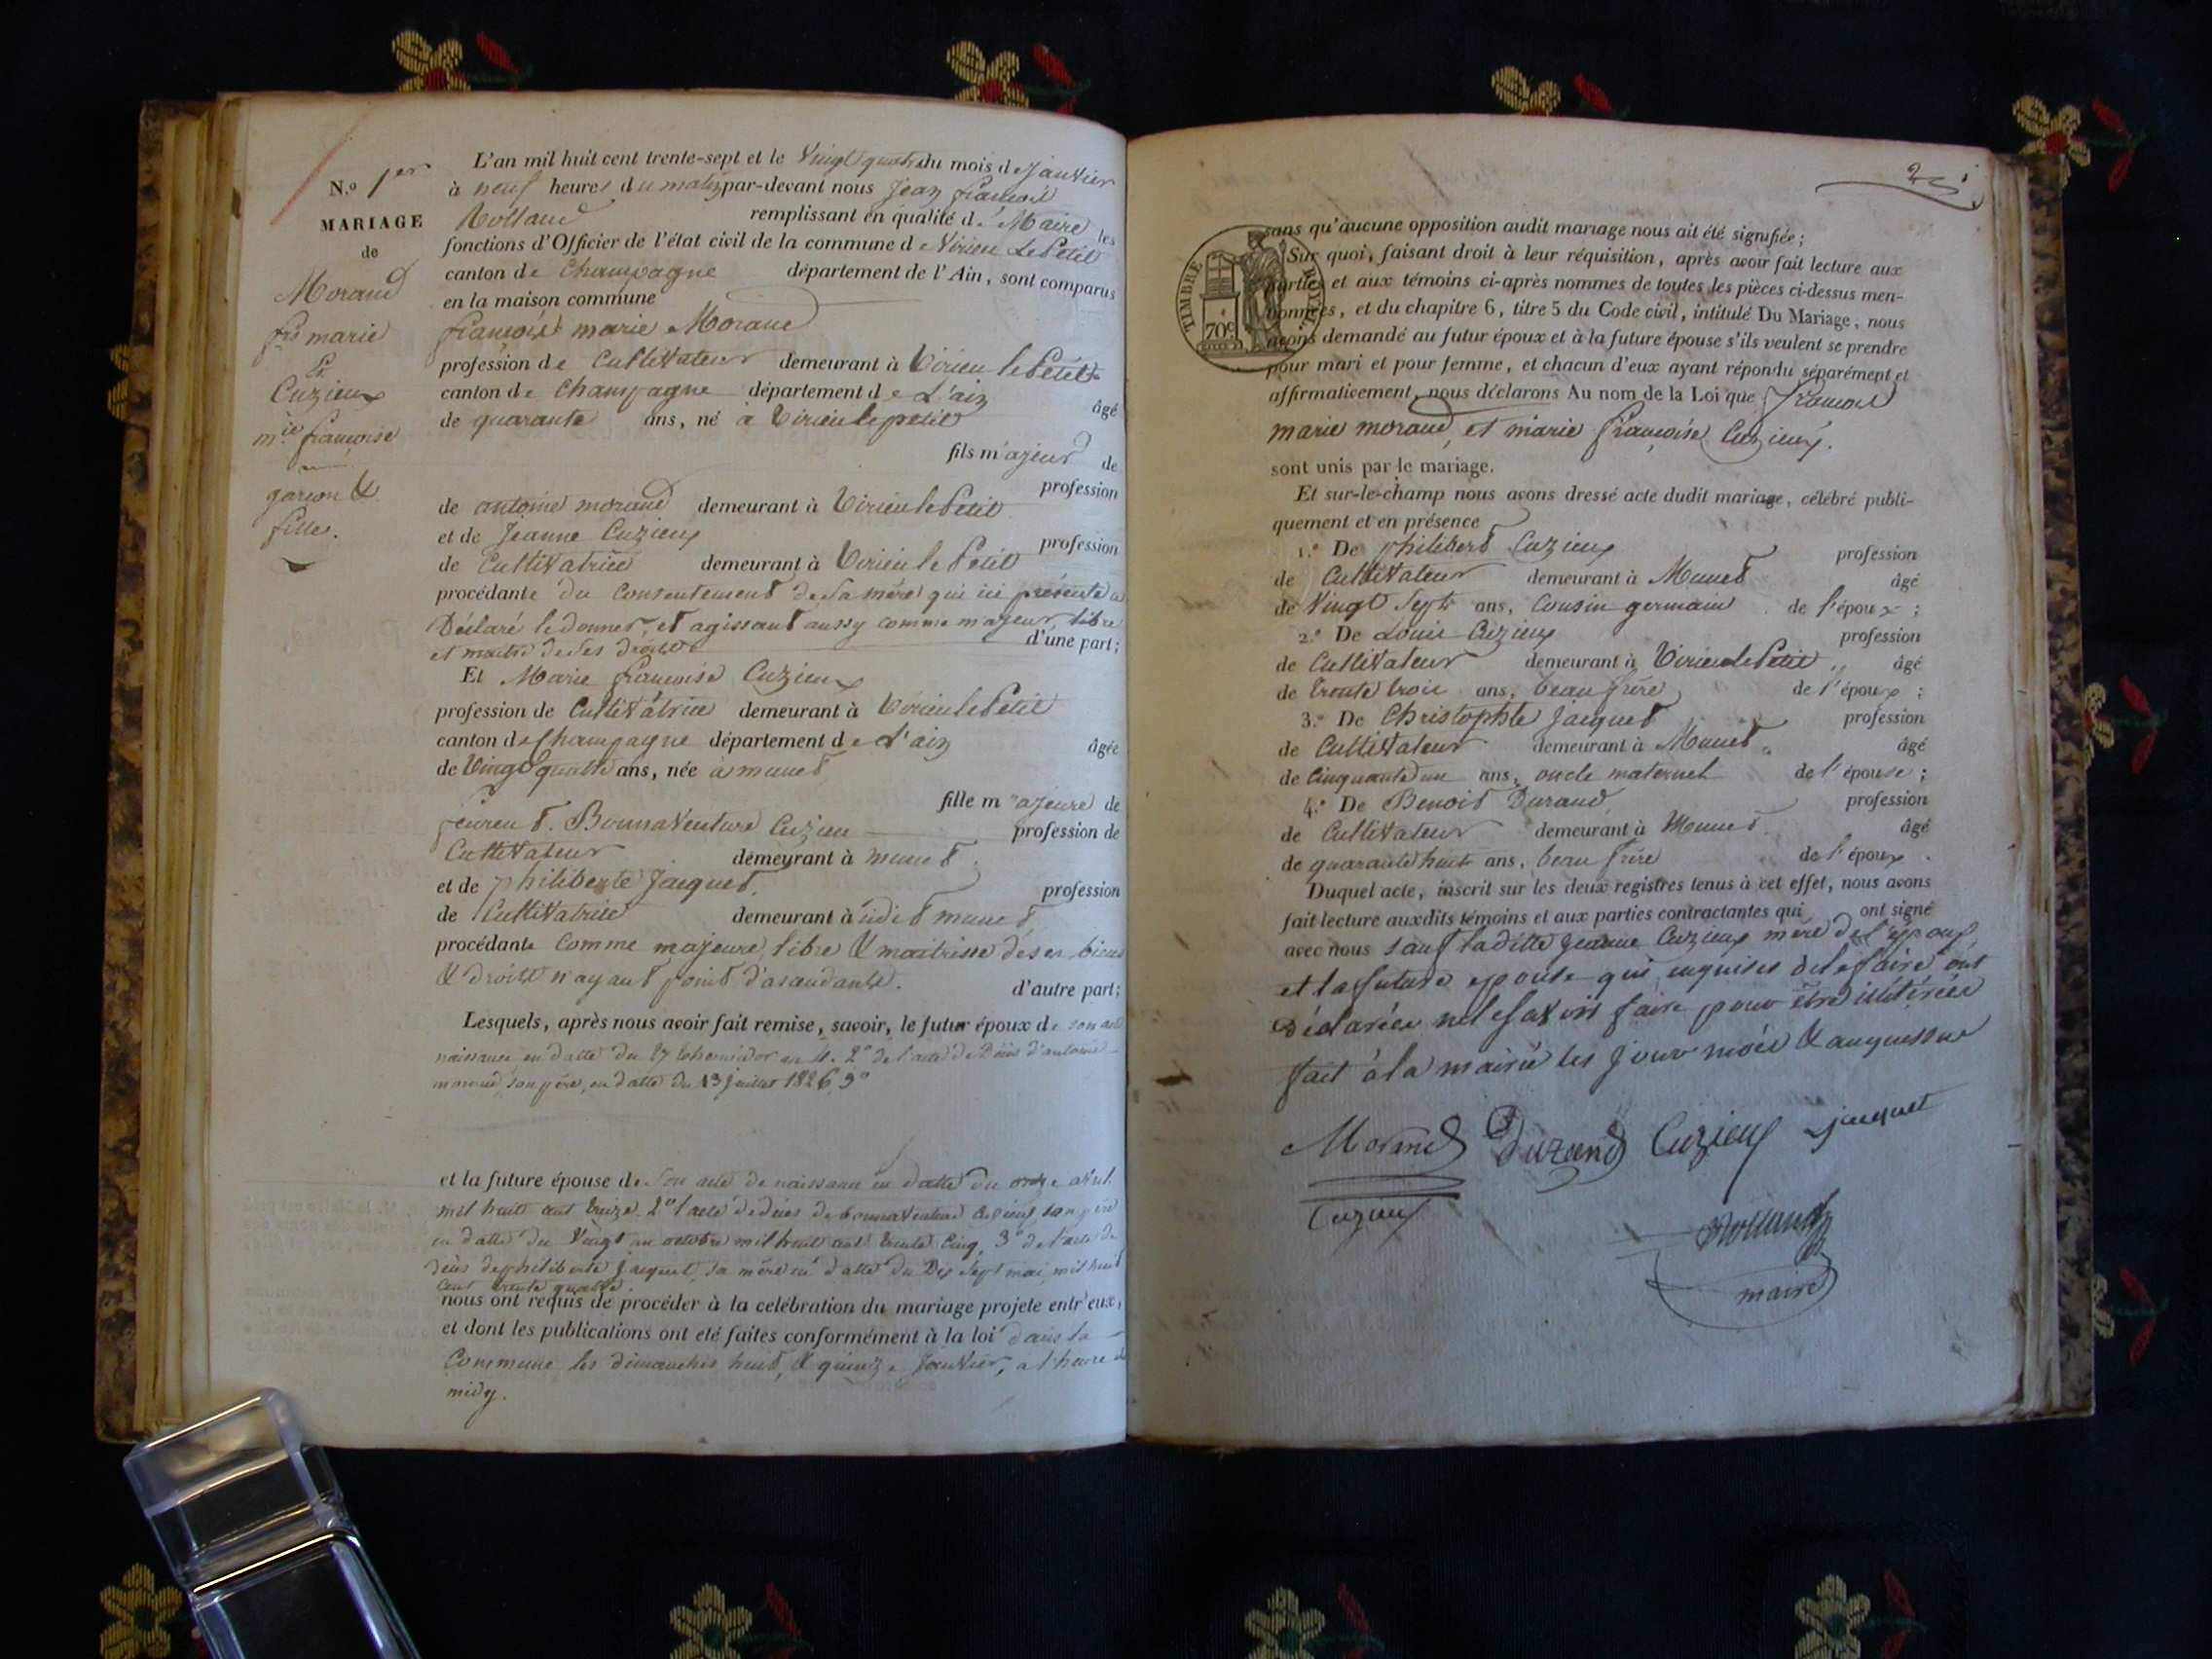 N.º 1er
MARIAGE
de
Morand
frs marie
Et
Cuzieux
mie françoise
garçon &
fille.
L'an mil huit cent trente-sept et le Vingt quatre du mois de Janvier
à neuf heures du matin par-devant nous Jean françois
Rolland remplissant en qualité de Maire les
fonctions d'Officier de l'état civil de la commune de Virieu Le Petit
canton de Champagne département de l'Ain, sont comparus
en la maison commune
françois marie Morand
profession de Cultivateur demeurant à Virieu le Petit
canton de Champagne département de L'ain
âgé
de quarante ans, né à Virieu le petit
fils majeur de
profession
de antoine morand demeurant à Virieu le Petit
et de Jeanne Cuzieux
profession
de Cultivatrice demeurant à Virieu le Petit
procédant du Consentement de Sa mère qui ici présente a
Déclaré le donner, et agissant aussy comme majeur libre
et maitre de ses droits d'une part;
Et Marie françoise Cuzieux
profession de Cultivatrice demeurant à Virieu le Petit
canton de Champagne département de L'ain
âgée
de Vingt quatre ans, née à munet
fille majeure de
feu Bonnaventure Cuzieu profession de
Cultivateur demeurant à munet
et de philiberte Jacquet.
profession
de Cultivatrice demeurant à udit munet
procédante Comme majeure, libre & maitrisse de ses biens
& droits n'ayant point d'asandants. d'autre part;
Lesquels, après nous avoir fait remise, savoir, le futur époux de son acte
naissance en datte du 27 thermidor an 4. 2º de l'acte de Décès d'antoine
morand, son père, en datte du 13 juillet 1826 3º
et la future épouse de Son acte de naissance en datte du onze avril
mil huit cent treize. 2º l'acte de décès de bonnaventure Cuzieux, son père
en datte du Vingt un octobre mil huit cent trente Cinq, 3º de l'acte de
décès de philiberte Jacquet, sa mère en datte du Dix Sept mai mil huit
cent trente quatre.
nous ont requis de procéder à la celébration du mariage projete entr'eux,
et dont les publications ont eté faites conformément à la loi dans la
Commune les dimanches huit, & quinze Janvier, a l'heure de
midy.
2
TIMBRE ROYAL
70c
sans qu'aucune opposition audit mariage nous ait été signifiée;
Sur quoi, faisant droit à leur réquisition, après avoir fait lecture aux
parties et aux témoins ci-après nommes de toutes les pièces ci-dessus men-
tionnées, et du chapitre 6, titre 5 du Code civil, intitulé Du Mariage, nous
avons demandé au futur époux et à la future épouse s'ils veulent se prendre
pour mari et pour femme, et chacun d'eux ayant répondu séparément et
affirmativement, nous déclarons Au nom de la Loi que françois
marie morand, et marie françoise Cuzieux.
sont unis par le mariage.
Et sur-le-champ nous avons dressé acte dudit mariage, célébré publi-
quement et en présence
1.º De philibert Cuzieux profession
de Cultivateur demeurant à Munet âgé
de Vingt Sept ans, Cousin germain de l'époux;
2.º De Louis Cuzieux profession
de Cultivateur demeurant à Virieu le Petit âgé
de trente trois ans, beau frère de l'époux;
3.º De Christophle Jacquet profession
de Cultivateur demeurant à Munet âgé
de Cinquante un ans, oncle maternel de l'épouse;
4.º De Benoit Durand profession
de Cultivateur demeurant à Munet âgé
de quarante huit ans, beau frère de l'époux.
Duquel acte, inscrit sur les deux registres tenus à cet effet, nous avons
fait lecture auxdits témoins et aux parties contractantes qui ont signé
avec nous sauf laditte Jeanne Cuzieux mère de l'époux,
et la future epouse qui, requises de le faire ont
Déclarées ne le savoir faire pour être illitérées
fait à la mairie les jour mois & an que dessus
Morand Durand Cuzieux Jacquet
Cuzieux
Rolland
maire